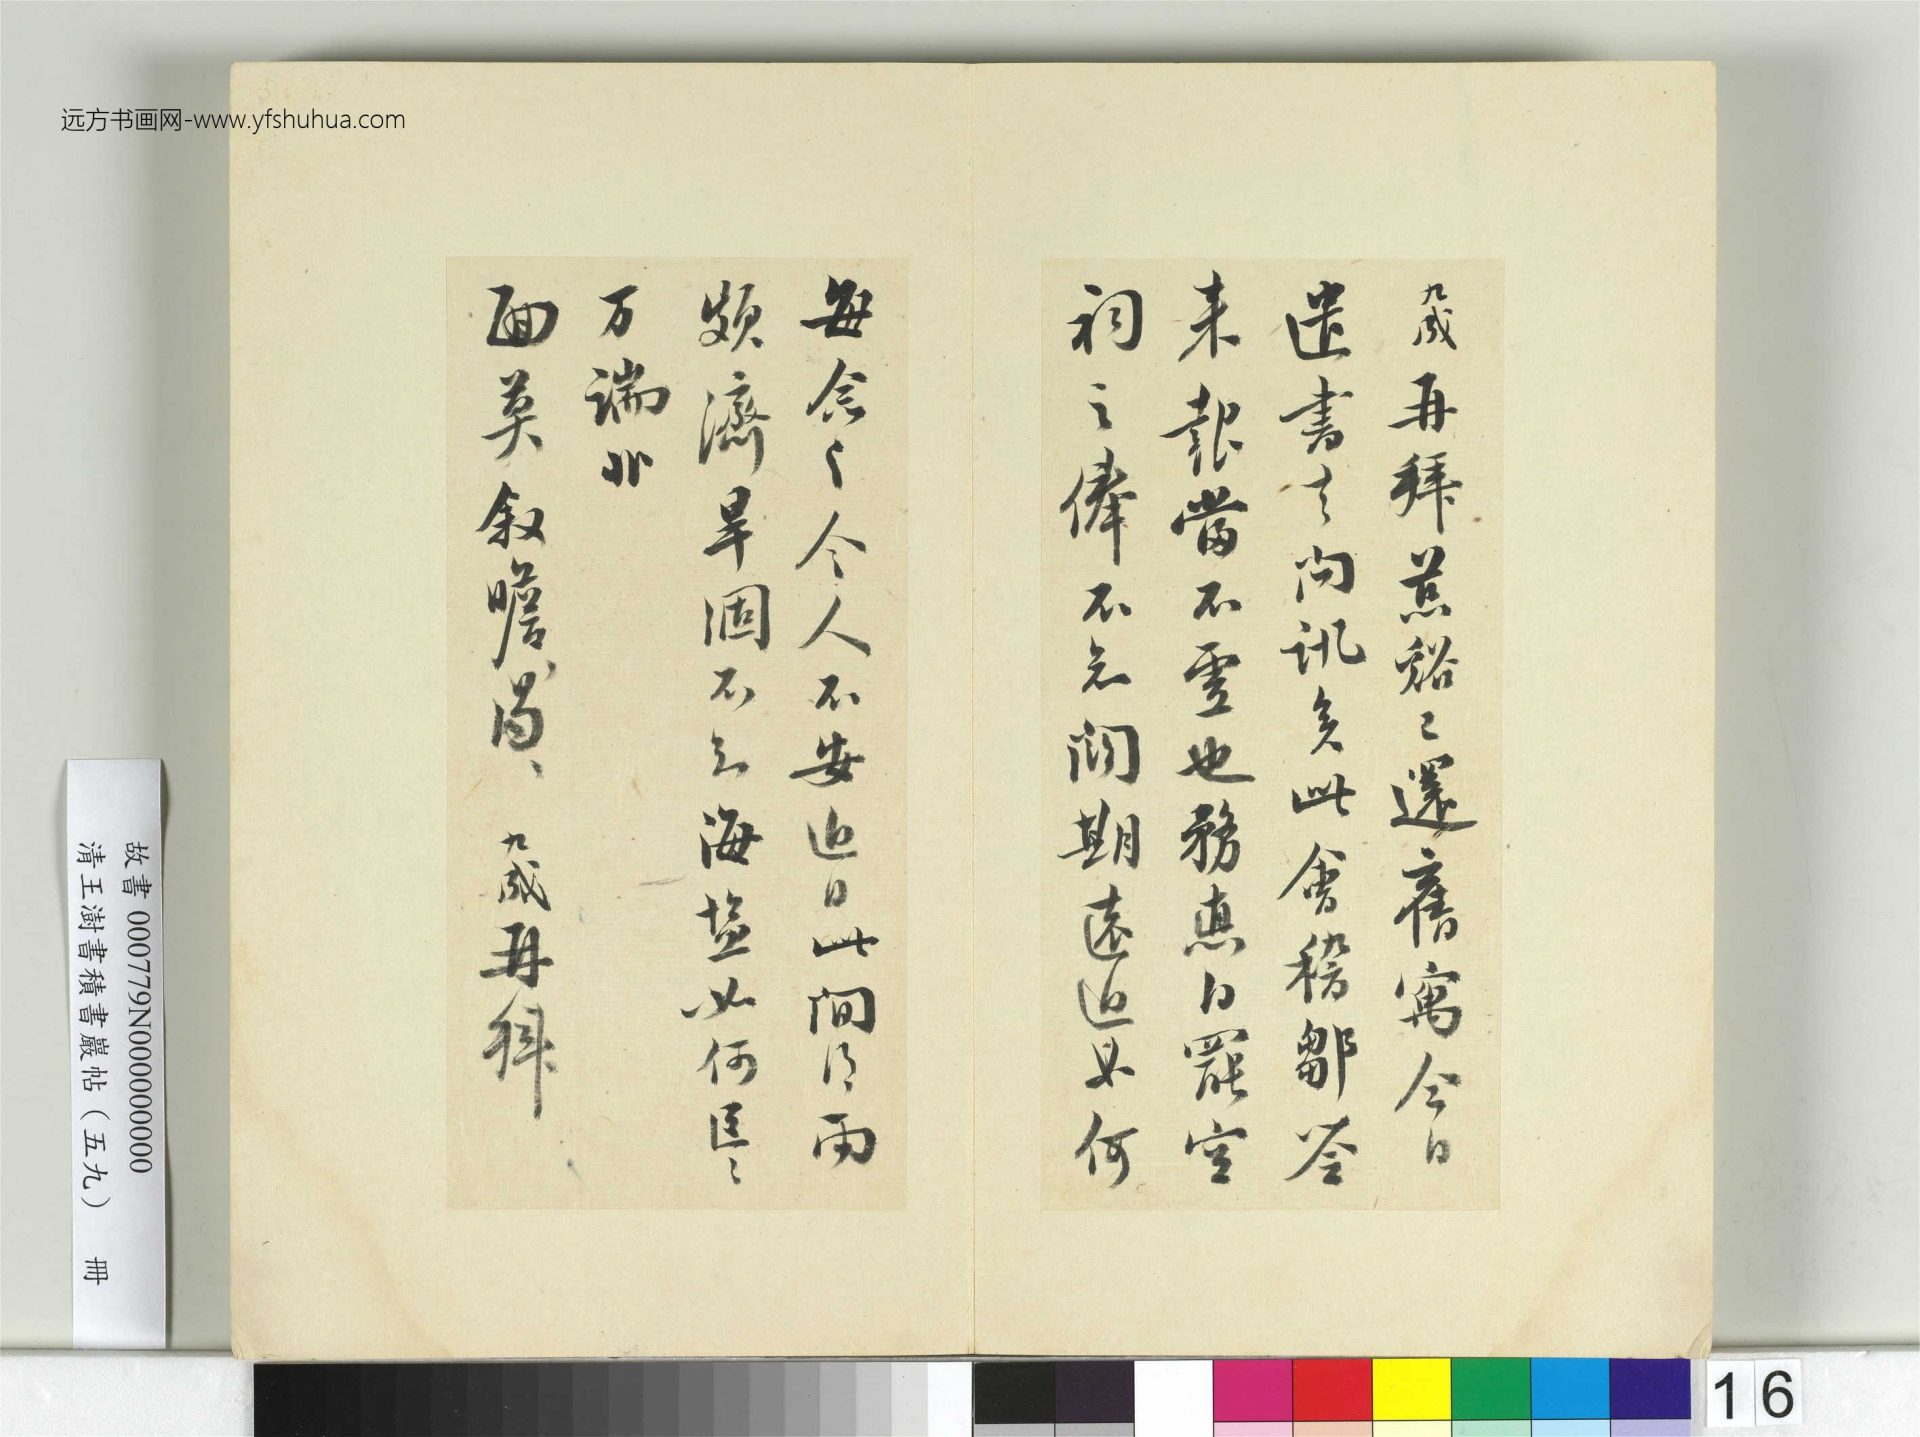 远方书画网-www.yfshuhua.com
九成再拜慈谿已還舊寓今日
遣書去问訊矣此會稽鄒答
来報當不虛也務惠白罷宮
祠之俸不忘闊期遠近如何
每念〻令人不安近日此間得雨
頗濟旱涸不知海鹽如何區〻
万端非
面莫叙瞻渴
九成再拜
故書 000779N000000000
清王澍書積書巖帖（五九） 冊
16